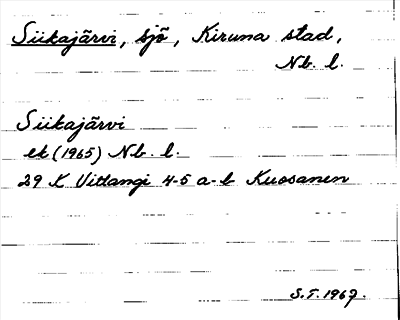 Siikajärvi, sjö, Kiruna stad,
Nb. l.
Siikajärvi
ek (1965) Nb. l.
29 K Vittangi 4-5 a-b Kuosanen
S.T. 1967.